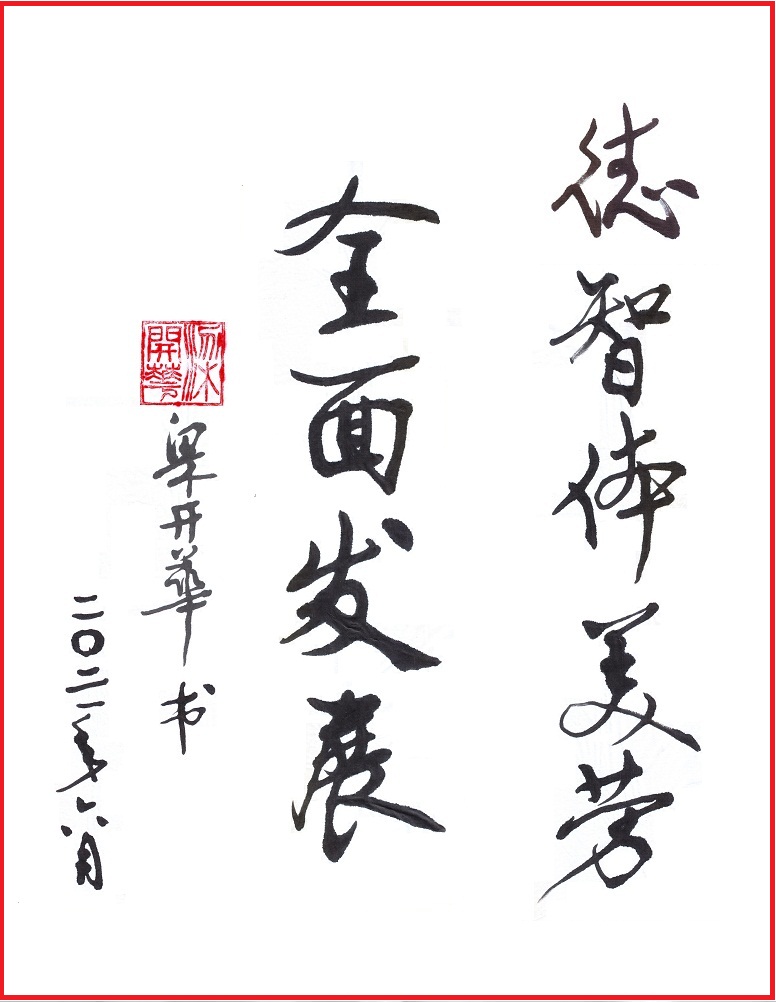 德智体美劳
全面发展
梁開華
梁开華书
二〇二一年六月